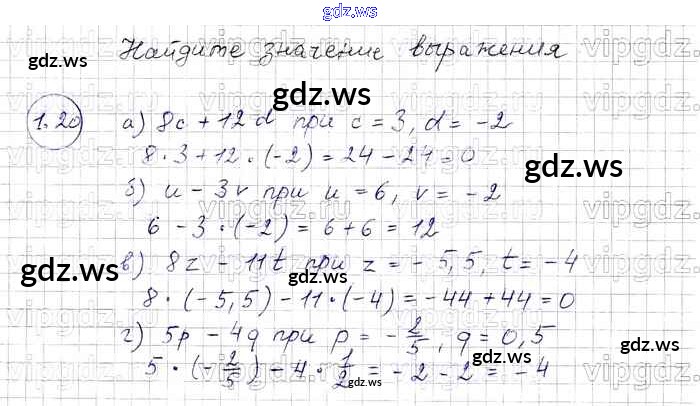 gdz.ws
Найдите значение выражения
gdz.ws
gdz.ws
1.20
а) 8c + 12d при c = 3, d = -2
8 · 3 + 12 · (-2) = 24 - 24 = 0
б) u - 3v при u = 6, v = -2
gdz.ws
6 - 3 · (-2) = 6 + 6 = 12
в) 8z - 11t при z = -5,5, t = -4
gdz.ws
gdz.ws
8 · (-5,5) - 11 · (-4) = -44 + 44 = 0
г) 5p - 4q при p = -2/5, q = 0,5
5 · (-2/5) - 4 · 1/2 = -2 - 2 = -4
gdz.ws
gdz.ws
gdz.ws
vipgdz.ru